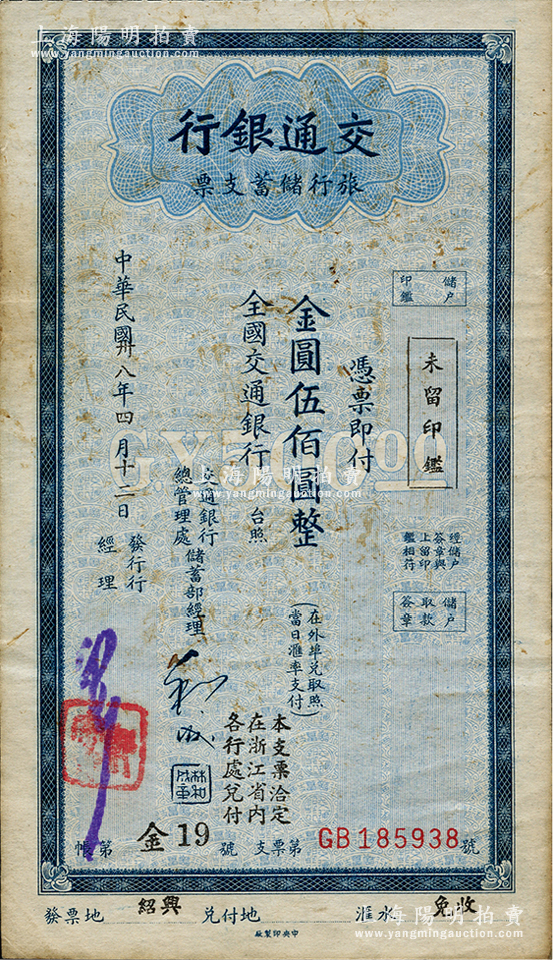 上海陽明拍賣
www.yangmingauction.com
海陽明拍賣
www.yangmingauction.com
行銀通交
票支蓄儲行旅
儲戶
印鑑
未留印鑑
經儲戶
簽章與
上留印
鑑相符
儲戶
取款
簽章
憑票即付
金圓伍佰圓整
(在外埠兌取照
當日滙率支付)
G.Y.500.00
全國交通銀行
台照
本支票洽定
在浙江省內
各行處兌付
交通銀行
總管理處
儲蓄部經理
中華民國卅八年四月十二日
發行行
經理
海陽明拍賣
www.yangmingauction.com
帳第
金19
號
支票第
GB185938
號
發票地
紹興
兌付地
滙水
免收
中央印製廠
海陽明拍賣
www.yangmingauction.com